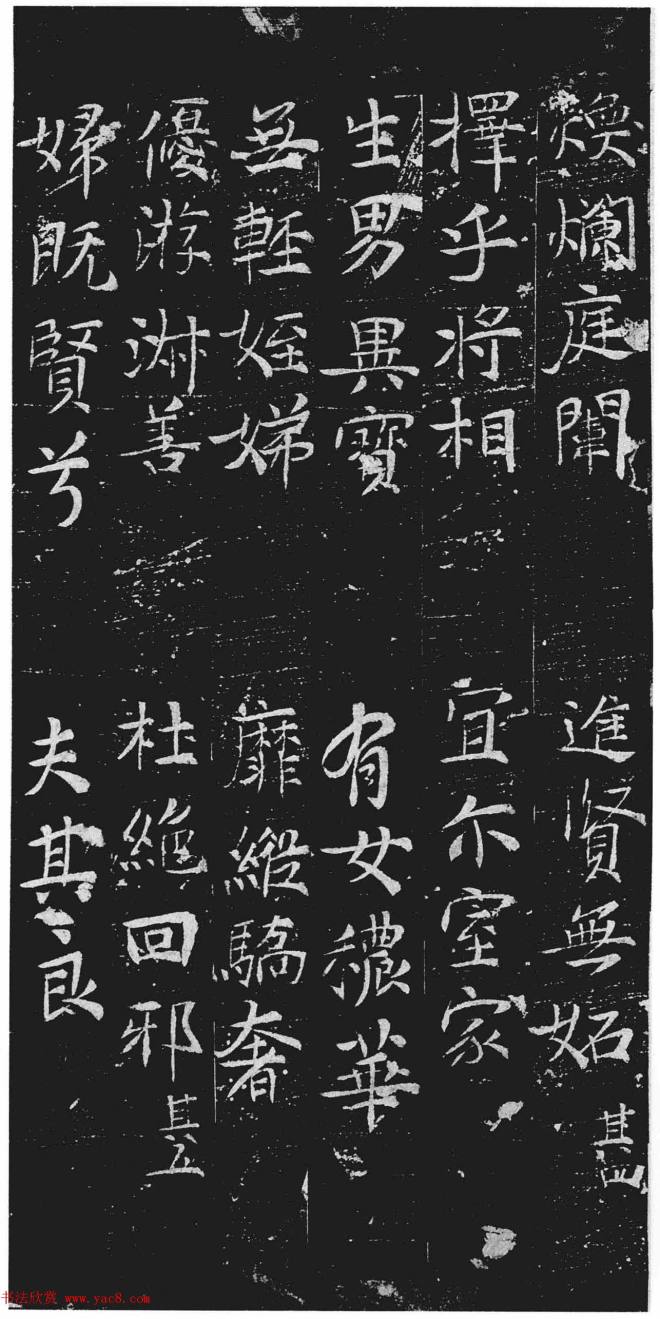 煥爛庭闈 進賢無妬 其四
擇乎将相 宜尔室家
生男異寶 有女穠華
無輕姪娣 靡縱驕奢
優游淑善 杜絶回邪 其五
婦既賢兮 夫其良
书法欣赏 www.yac8.com